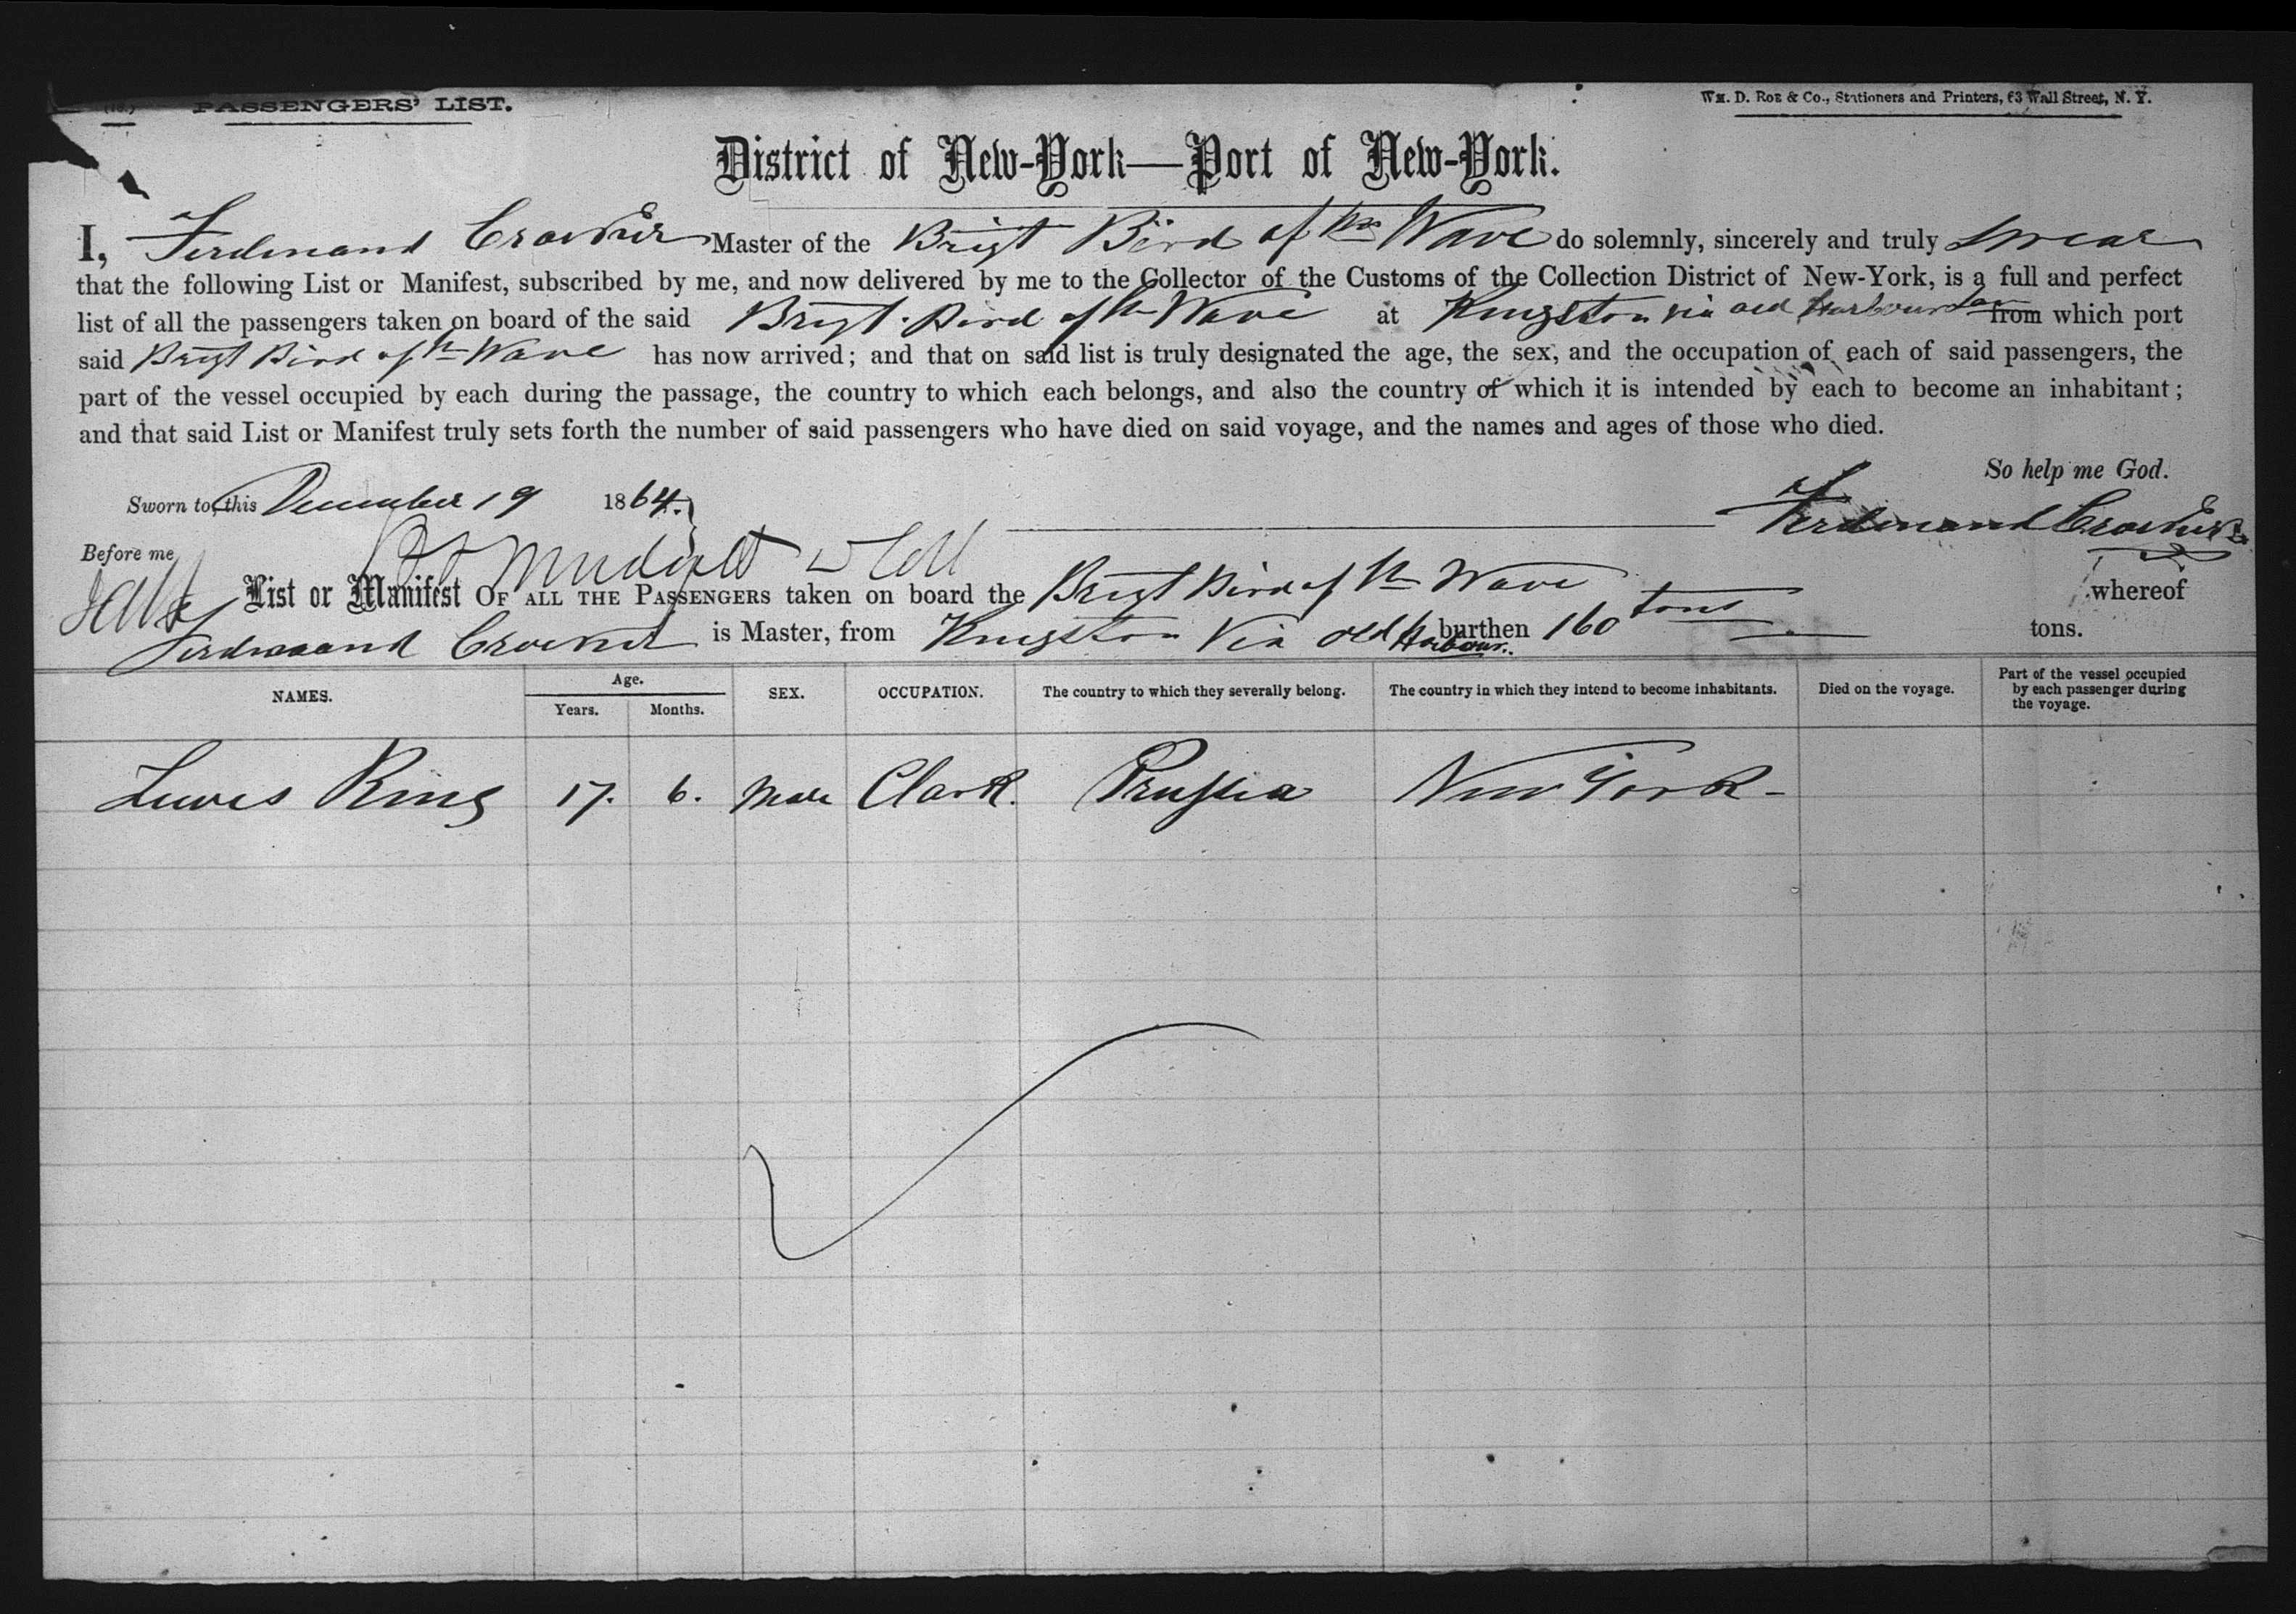 PASSENGERS' LIST.
Wm. D. Roe & Co., Stationers and Printers, 63 Wall Street, N. Y.
District of New-York—Port of New-York.
I, Ferdinand Master of the Brigt Bird of the Wave do solemnly, sincerely and truly swear
that the following List or Manifest, subscribed by me, and now delivered by me to the Collector of the Customs of the Collection District of New-York, is a full and perfect
list of all the passengers taken on board of the said Brigt. Bird of the Wave at Kingston via old Harbour from which port
said Brigt Bird of the Wave has now arrived; and that on said list is truly designated the age, the sex, and the occupation of each of said passengers, the
part of the vessel occupied by each during the passage, the country to which each belongs, and also the country of which it is intended by each to become an inhabitant;
and that said List or Manifest truly sets forth the number of said passengers who have died on said voyage, and the names and ages of those who died.
So help me God.
Sworn to, this December 19 1864.
Ferdinand
Before me
List or Manifest OF ALL THE PASSENGERS taken on board the Brigt Bird of the Wave whereof
Ferdinand is Master, from Kingston Via Old Harbour. burthen 160 tons tons.
NAMES. Age. Years. Months. SEX. OCCUPATION. The country to which they severally belong. The country in which they intend to become inhabitants. Died on the voyage. Part of the vessel occupied by each passenger during the voyage.
Lewes Ring 17. 6. Male Clark. Prussia New York-